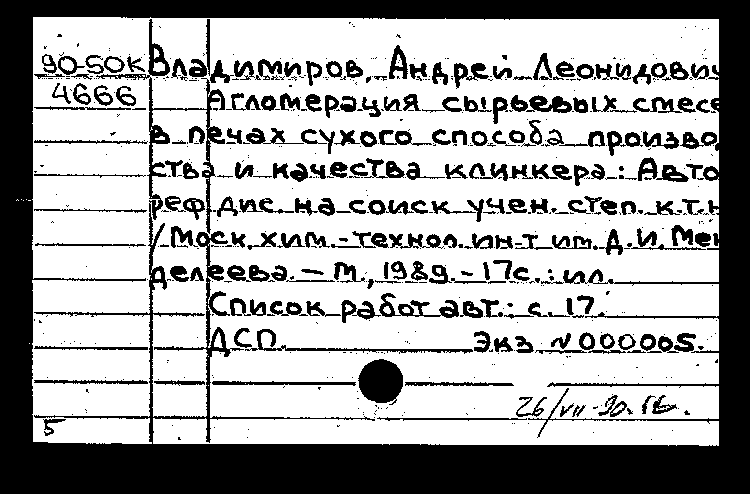 90-50К Владимиров, Андрей Леонидович
4666 Агломерация сырьевых смесе
в печах сухого способа произво
ства и качества клинкера: Авто
реф. дис. на соиск. учен. степ. к.т.н
/Моск. хим.-технол. ин-т им. Д.И. Мен
делеева. — М., 1989. - 17с.: ил.
Список работ авт.: с. 17.
ДСП. Экз №000005.
26/VII-90.
5